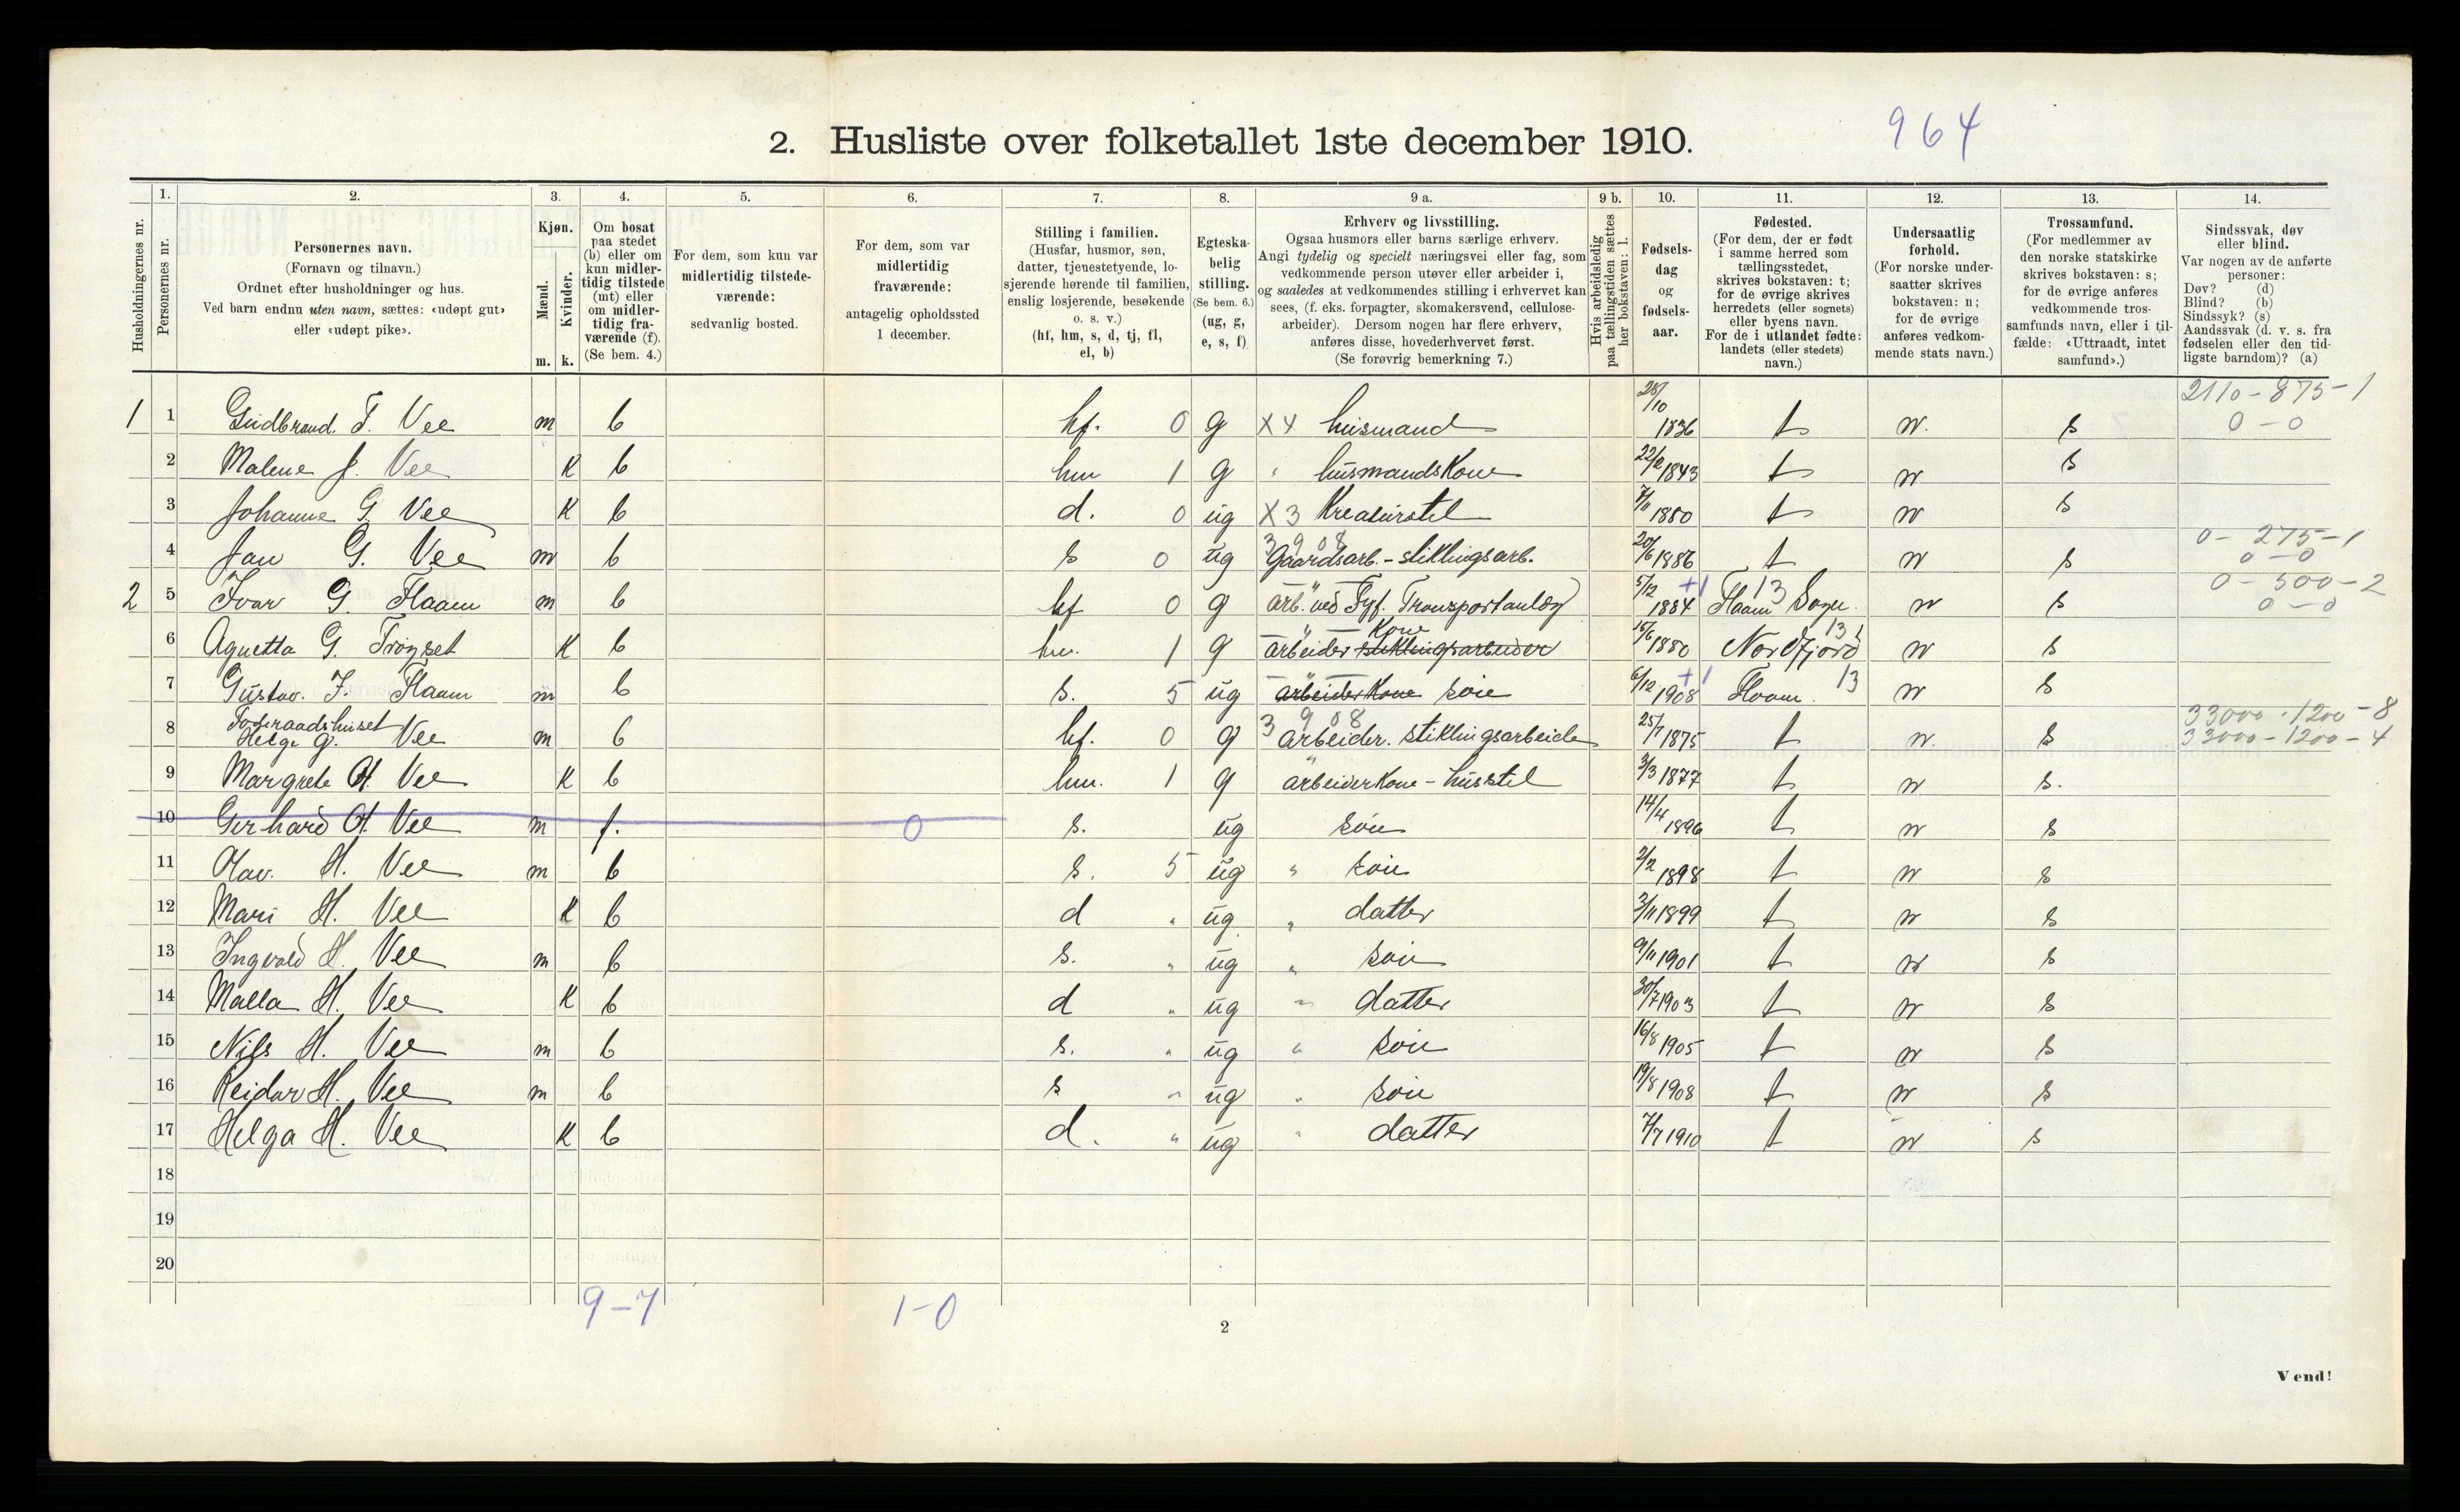 964
2. Husliste over folketallet 1ste december 1910.
Husholdningernes nr.
1.
Personernes nr.
2.
Personernes navn.
(Fornavn og tilnavn.)
Ordnet efter husholdninger og hus.
Ved barn endnu uten navn, sættes: «udøpt gut»
eller «udøpt pike».
3.
Kjøn.
Mænd.
Kvinder.
m. k.
4.
Om bosat
paa stedet
(b) eller om
kun midler-
tidig tilstede
(mt) eller
om midler-
tidig fra-
værende (f).
(Se bem. 4.)
5.
For dem, som kun var
midlertidig tilstede-
værende:
sedvanlig bosted.
6.
For dem, som var
midlertidig
fraværende:
antagelig opholdssted
1 december.
7.
Stilling i familien.
(Husfar, husmor, søn,
datter, tjenestetyende, lo-
sjerende hørende til familien,
enslig losjerende, besøkende
o. s. v.)
(hf, hm, s, d, tj, fl,
el, b)
8.
Egteska-
belig
stilling.
(Se bem. 6.)
(ug, g,
e, s, f)
9 a.
Erhverv og livsstilling.
Ogsaa husmors eller barns særlige erhverv.
Angi tydelig og specielt næringsvei eller fag, som
vedkommende person utøver eller arbeider i,
og saaledes at vedkommendes stilling i erhvervet kan
sees, (f. eks. forpagter, skomakersvend, cellulose-
arbeider). Dersom nogen har flere erhverv,
anføres disse, hovederhvervet først.
(Se forøvrig bemerkning 7.)
9 b.
Hvis arbeidsledig
paa tællingstiden sættes
her bokstaven: l.
10.
Fødsels-
dag
og
fødsels-
aar.
11.
Fødested.
(For dem, der er født
i samme herred som
tællingsstedet,
skrives bokstaven: t;
for de øvrige skrives
herredets (eller sognets)
eller byens navn.
For de i utlandet fødte:
landets (eller stedets)
navn.)
12.
Undersaatlig
forhold.
(For norske under-
saatter skrives
bokstaven: n;
for de øvrige
anføres vedkom-
mende stats navn.)
13.
Trossamfund.
(For medlemmer av
den norske statskirke
skrives bokstaven: s;
for de øvrige anføres
vedkommende tros-
samfunds navn, eller i til-
fælde: «Uttraadt, intet
samfund».)
14.
Sindssvak, døv
eller blind.
Var nogen av de anførte
personer:
Døv? (d)
Blind? (b)
Sindssyk? (s)
Aandssvak (d. v. s. fra
fødselen eller den tid-
ligste barndom)? (a)
2110-875-1
1 1 Gudbrand. T. Vee m b hf. 0 g X4 husmand 28/10 1836 t n. s 0-0
2 Malene J. Vee k b hm 1 g " husmandskone 22/2 1843 t n s
3 Johanne G. Vee k b d. 0 ug X3 Kreaturstel 1880 t n s
3908 0-275-1
4 Jan G. Vee m b s 0 ug Gaardsarb. - stiklingsarb. 20/6 1886 t n s 0-0
+1 13 0-500-2
2 5 Ivar G. Flaam m b hf 0 g arb. ved Fyf. Transportanlæg 5/12 1884 Flaam Sogn. n s 0-0
Kone 13
6 Agnetta G. k b hm. 1 g arbeider stiklingsarbeider 15/6 1880 Nordfjord n s
+1
7 Gustav. I. Flaam m b s. 5 ug arbeider Kone søn 6/12 1908 Flaam 13 n s
Foderaadshuset 3908 33000-1200-8
8 Helge G. Vee m b hf. 0 g arbeider. stiklingsarbeide 25/7 1875 t n. s 33000-1200-4
9 Margrete H. Vee k b hm. 1 g arbeiderkone - husstel 3/3 1877 t n s.
10 Gerhard H. Vee m f. 0 s. ug søn 14/4 1896 t n s
11 Olav. H. Vee m b s. 5 ug " søn 2/2 1898 t n s
12 Mari H. Vee k b d " ug " datter 3/11 1899 t n s
13 Ingvald H. Vee m b s. " ug " søn 9/11 1901 t n s
14 Malla H. Vee k b d " ug " datter 30/7 1903 t n s
15 Nils H. Vee m b s. " ug " søn 16/8 1905 t n s
16 Reidar H. Vee m b s " ug " søn 19/8 1908 t n s
17 Helga H. Vee k b d. " ug " datter 7/7 1910 t n s
18
19
20
9-7 1-0
2
Vend!